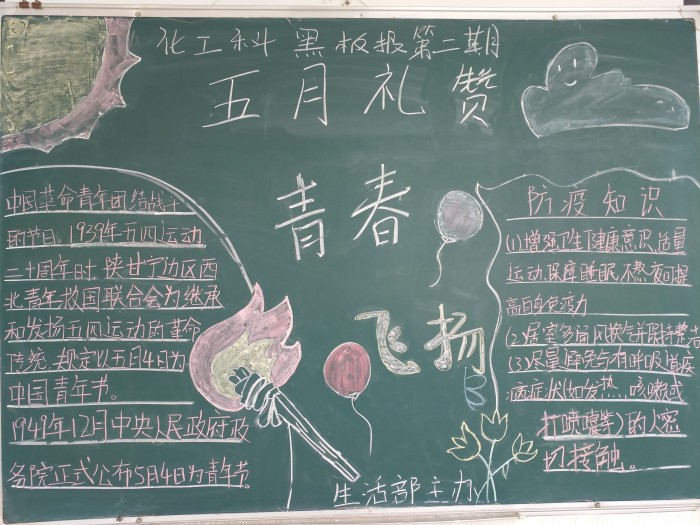 化工科黑板报第二期
五月礼赞
青春
飞扬
中国革命青年团结战斗
的节日。1939年五四运动
二十周年时,陕甘宁边区西
北青年救国联合会为继承
和发扬五四运动的革命
传统,规定以五月4日为
中国青年节。
1949年12月中央人民政府政
务院正式公布5月4日为青年节。
防疫知识
(1)增强卫生健康意识,适量
运动,保障睡眠,不熬夜可提
高自身免疫力
(2)居室多通风换气并保持整洁
(3)尽量避免与有呼吸道疾
病症状(如发热,咳嗽或
打喷嚏等)的人密
切接触。
生活部主办